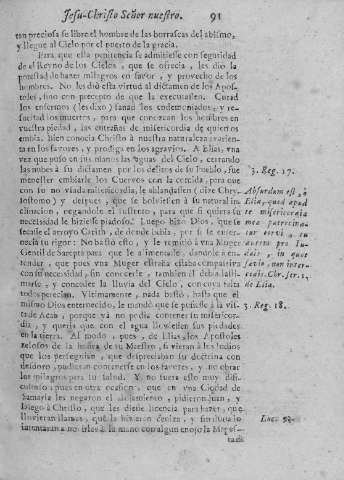 Jesu-Christo Señor nuestro. 91
tan preciosa se libre el hombre de las borrascas del abismo,
y llegue al Cielo por el puerto de la gracia.
Para que ella penitencia se admitiesse con seguridad
el Reyno de los Cielos, que se ofrecia, les dió la
potestad de hazer milagros en favor, y provecho de los
hombres. No les dió esta virtud al dictamen de los Apos-
toles, sino con precepto de que la executassen. Curad
los enfermos (les dixo) sanad los endemoniados, y re-
sucitad los muertos, para que conozcan los hombres en
vuestra piedad, las entrañas de misericordia de quien os
embia. bien conocia Christo à nuestra naturaleza
en los favores, y prodiga en los agravios. A Elias, vna
vez que puso en sus manos las aguas del Cielo, cerrando
las nubes à su dictamen por los delitos de su Pueblo, fue
menester embiarle los Cuervos con la comida, para que
con su no vsada misericordia, le ablandassen (dize Chry-
sostomo) y despues, que se bolviessen à su natural in-
clinacion, negandole el sustento, para que si quiera su
necessidad le hiziesse piadoso. Luego hizo Dios, que se
secasse el arroyo Carith, de donde bebia, por si se enter-
necia su rigor: No bastó esto, y le remitió à vna Muger
Gentil de Sarepta para que le alimentasse, dandole à en-
tender, que pues vna Muger estraña estaba compassiva
con su necessidad, sin conocerle, tambien él debia lasti-
marse, y conceder la lluvia del Cielo, con cuya falta
todos perecian. Vltimamente, nada bastó, hasta que el
mismo Dios enternecido, le mandó que se pusiesse à la vis-
ta de Acab, porque yà no podia contener su misericor-
dia, y queria que con el agua lloviessen sus piedades
en la tierra. Al modo, pues, de Elias, los Apostoles
zelosos de la honra de su Maestro, si vieran à los Judios
que los perseguian, que despreciaban su doctrina con
desdoro, pudieran contenerse en los favores, y no obrar
los milagros para su salud. Y no fuera esto muy difi-
cultoso; pues en otra ocasion, que en vna Ciudad de
Samaria les negaron el alojamiento, pidieron Juan, y
Diego à Christo, que les diesse licencia para hazer, que
lloviessen llamas, que la hizieran ceniza, y sin duda lo
intentaran a no irles à la mano con algun enojo la Mages-
tad
3. Reg. 17.
Absurdum est, ò
Elia, quod apud
te misericordia
mea patrocina-
3. Reg. 18.
Luc. 9.